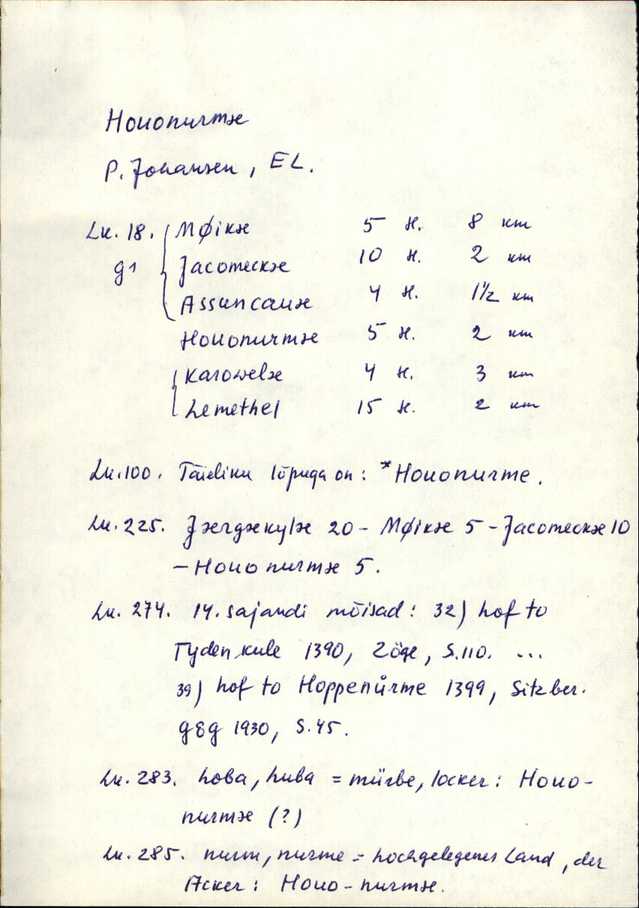 Houonurmæ
P. Johansen, EL.
Lk. 18. Møikæ 5 H. 8 km
g1 Jacomeckæ 10 H. 2 km
Assuncauæ 4 H. 1 1/2 km
Houonurmæ 5 H. 2 km
Karowelæ 4 H. 3 km
Lemethel 15 H. 2 km
Lk. 100. Täieliku lõpuga on: *Houonurme.
Lk. 225. Jærgækylæ 20 - Møikæ 5 - Jacomeckæ 10
- Houonurmæ 5.
Lk. 274. 14. sajandi mõisad: 32) hof to
Tyden kule 1390, Zöge, S. 110. ...
39) hof to Hoppenůrme 1399, Sitzber.
GEG 1930, S. 45.
Lk. 283. hoba, huba = mürbe, locker: Houo-
nurmæ (?)
Lk. 285. nurm, nurme = hochgelegenes Land, der
Acker: Houo-nurmæ.